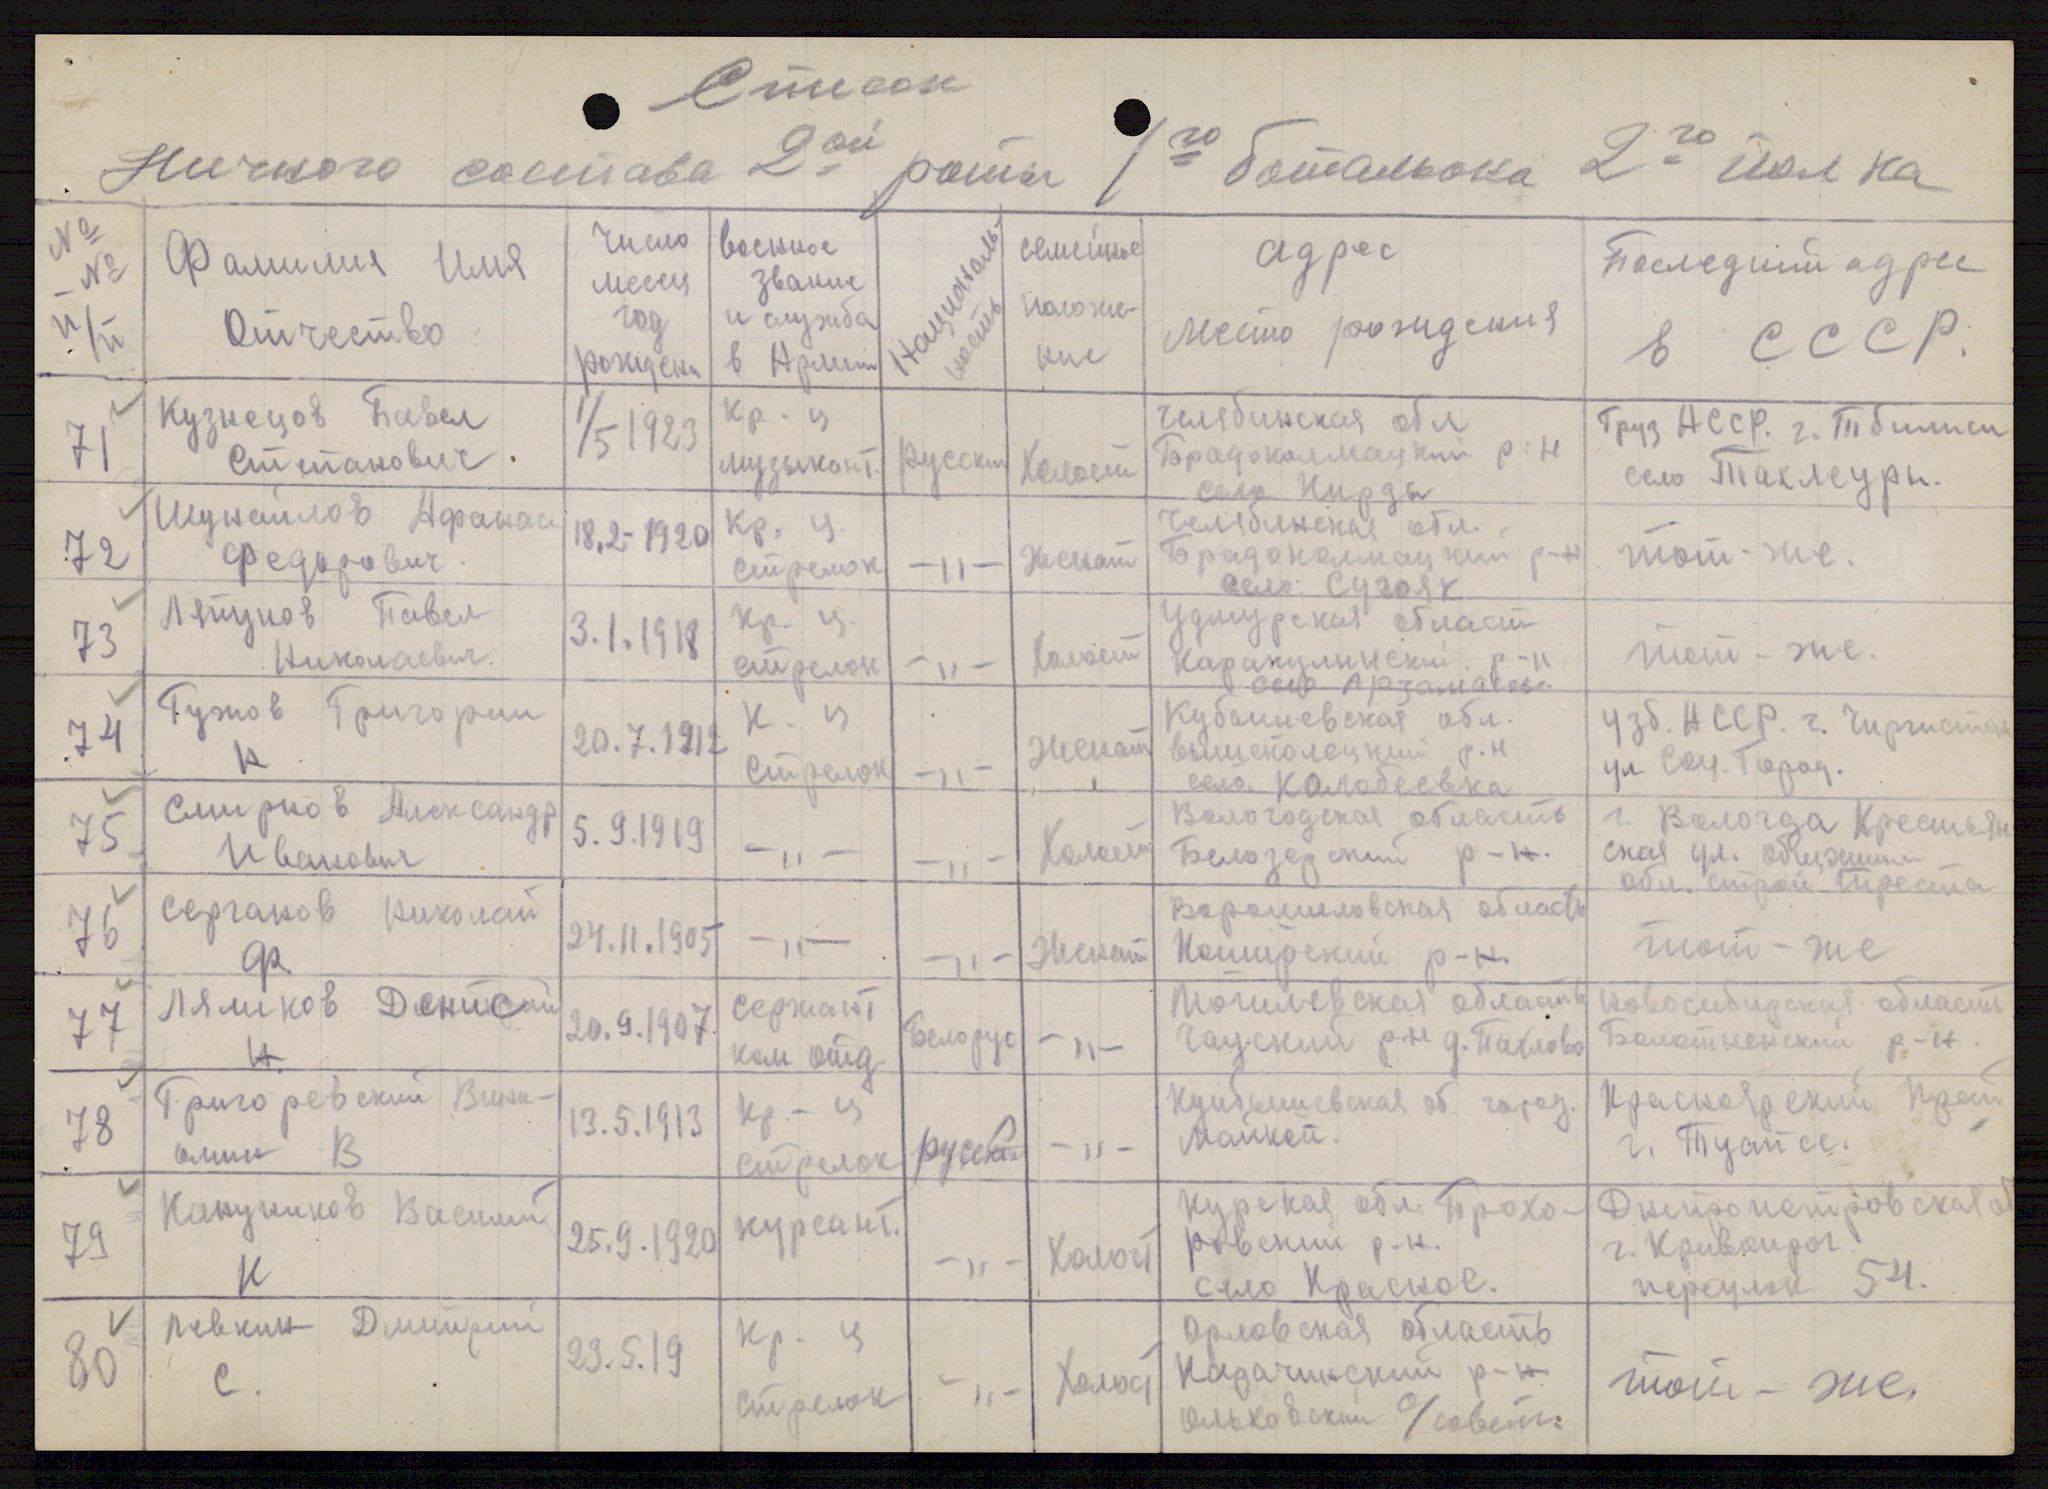 Список
Личного состава 2ой роты 1го батальона 2го полка
№ № п/п
Фамилия Имя Отчество
Число месец год рождени
военное звание и служба в Армии
Националь-ность
семейное положе-ние
адрес место рождения
Последний адрес в СССР.
71 Кузнецов Павел 1/5 1923 Кр. ц Челябинская обл Груз НССР. г. Тбилиси
Степанович. музыкант. русский Холост Бродоколмацкий р-н село
село Кирды
72 Афанас 18.2-1920 Кр. ц. Челябинская обл.
Федорович. стрелок -"- Женат Бродоколмацкий р-н тот-же.
село. Сугояк
73 Ляпунов Павел 3.1.1918 Кр. ц. Удмурская област
Николаевич. стрелок -"- Холост Каракулинский р-н тот-же.
село Арзамасц
74 Гужов Григории 20.7.1912 К. ц обл. Узб. НССР. г.
К стрелок -"- Женат р.н ул Соц. Город.
село Колобеевка
75 Смирнов Александр 5.9.1919 -"- -"- Холост Вологодская область г. Вологда Крестьян
Иванович Белозерский р-н. ская ул. общежит
обл. строй. треста
76 Серганов Николай 24.11.1905 -"- -"- Женат Ворошиловская область тот-же
Ф. р-н.
77 Лямков Денис 20.9.1907 сержант Белорус -"- Могилевская область Новосибирская область
Н. ком отд Чауский р-н д. Павлово Болотненский р-н.
78 Григоревский Вини- 13.5.1913 Кр-ц Куибышевская об город. Красноярский Край
амин В стрелок русский -"- Майкоп. г. Туапсе.
79 Канунников Василий 25.9.1920 курсант. Курская обл. Прохо- Днепропетровская об
К -"- Холост ровский р-н. г. Кривойрог
село Красное. переулок 54.
80 Левкин Дмитрий 23.5.19 Кр. ц Орловская область
С. стрелок -"- Холост р-н тот-же.
ольховский с/совет.